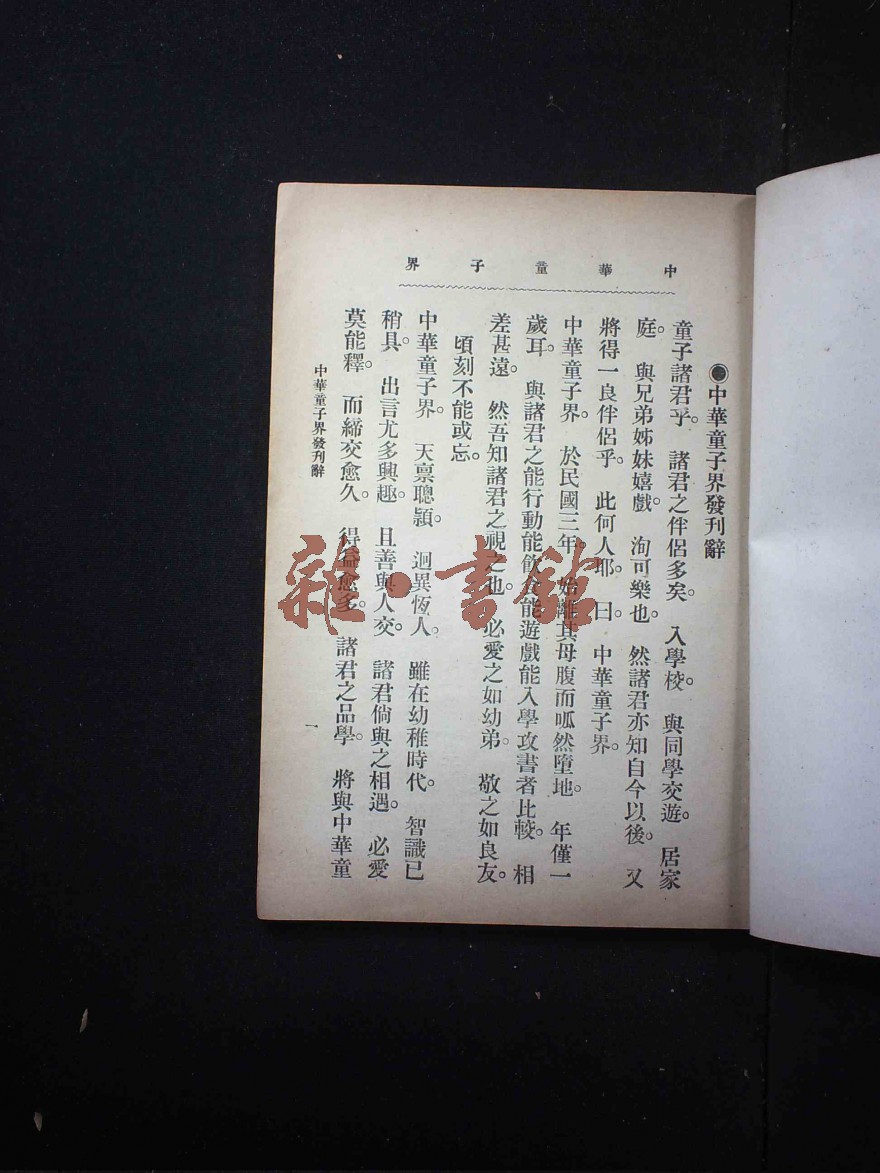 中華童子界
●中華童子界發刊辭
童子諸君乎。諸君之伴侶多矣。入學校。與同學交遊。居家
庭。與兄弟姊妹嬉戲。洵可樂也。然諸君亦知自今以後。又
將得一良伴侶乎。此何人耶。曰。中華童子界。
中華童子界。於民國三年。始離其母腹而呱然墮地。年僅一
歲耳。與諸君之能行動能飲食能遊戲能入學攻書者比較。相
差甚遠。然吾知諸君之視之也。必愛之如幼弟。敬之如良友。
頃刻不能或忘。
中華童子界。天禀聰穎。迥異恆人。雖在幼稚時代。智識已
稍具。出言尤多興趣。且善與人交。諸君倘與之相遇。必愛
莫能釋。而締交愈久。得益愈多。諸君之品學。將與中華童
中華童子界發刊辭
一
雜·書館